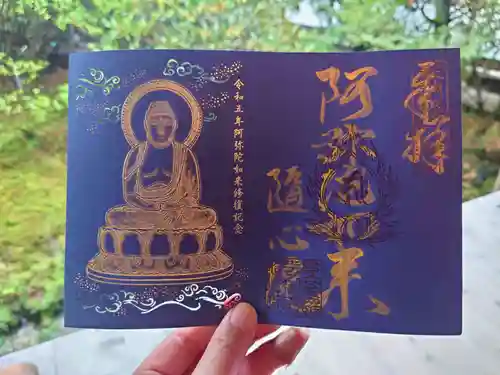 奉拝
阿弥陀如来
随心院
令和五年阿弥陀如来修復記念